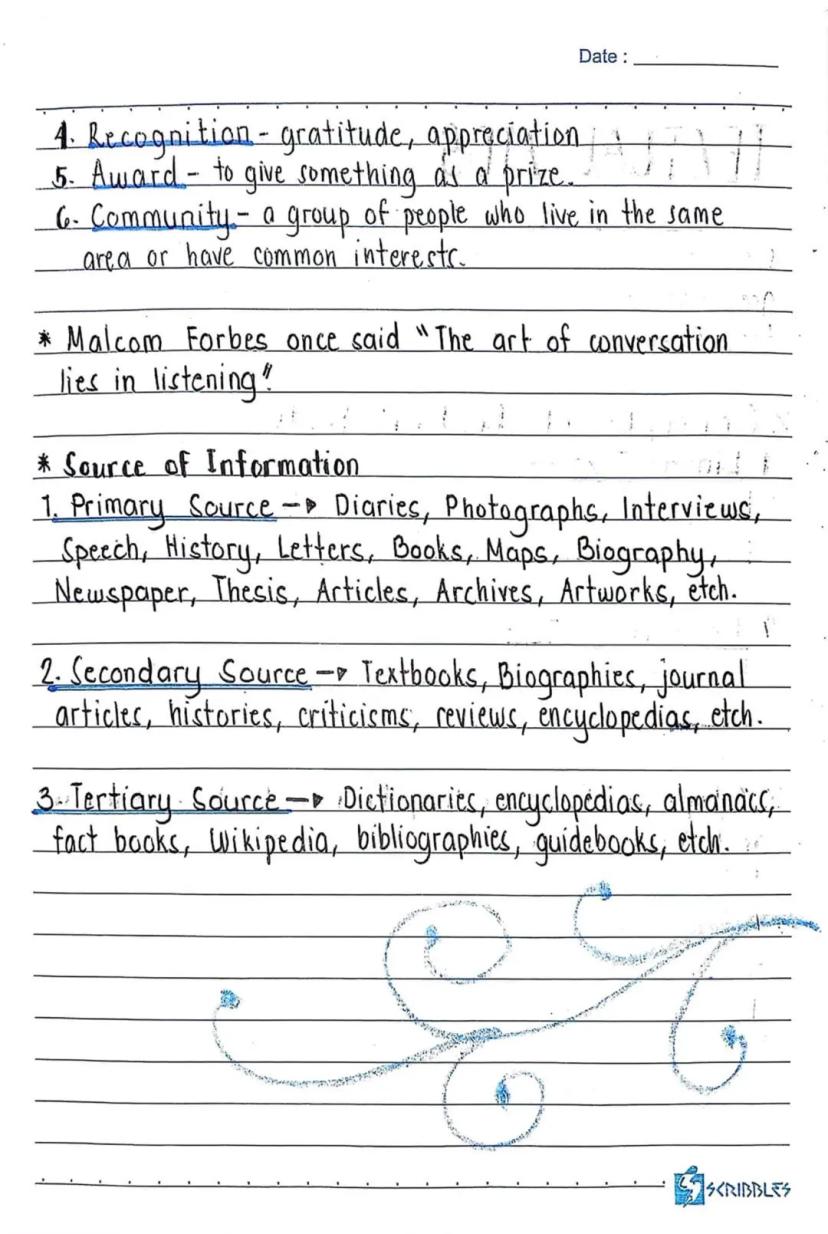 Date :
4. Recognition - gratitude, appreciation
5. Award - to give something as a prize.
6. Community - a group of people who live in the same
area or have common interests.
* Malcom Forbes once said "The art of conversation
lies in listening".
* Source of Information
1. Primary Source → Diaries, Photographs, Interviews,
Speech, History, Letters, Books, Maps, Biography,
Newspaper, Thesis, Articles, Archives, Artworks, etch.
2. Secondary Source → Textbooks, Biographies, journal
articles, histories, criticisms, reviews, encyclopedias, etch.
3. Tertiary Source → Dictionaries, encyclopedias, almanacs,
fact books, Wikipedia, bibliographies, guidebooks, etch.
SCRIBBLES